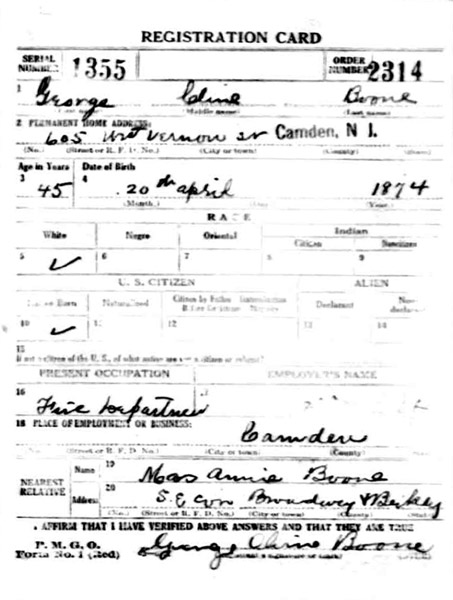 REGISTRATION CARD
SERIAL NUMBER 1355 ORDER NUMBER 2314
1 George Cline Boone
(Middle name) (Last name)
2 PERMANENT HOME ADDRESS:
605 Mt Vernon St Camden, N. J.
(No.) (Street or R. F. D. No.) (City or town) (County) (State)
Age in Years Date of Birth
3 45 4 20th April 1874
(Month.) (Day.) (Year.)
RACE
White Negro Oriental Indian
Citizen Noncitizen
5 ✓ 6 7 8 9
U. S. CITIZEN ALIEN
Native Born Naturalized Citizen by Father's Naturalization Before Registrant's Majority Declarant Non-declarant
10 ✓ 11 12 13 14
15
If not a citizen of the U. S., of what nation are you a citizen or subject?
PRESENT OCCUPATION EMPLOYER'S NAME
16 17
Fire Department
18 PLACE OF EMPLOYMENT OR BUSINESS:
Camden
(No.) (Street or R. F. D. No.) (City or town) (County) (State)
NEAREST RELATIVE Name 19 Mrs Annie Boone
Address 20 S. E cor Broadway & Berkley
(No.) (Street or R. F. D. No.) (City or town) (County) (State)
I AFFIRM THAT I HAVE VERIFIED ABOVE ANSWERS AND THAT THEY ARE TRUE
P. M. G. O.
Form No. 1 (Red) George Cline Boone